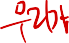 우리가